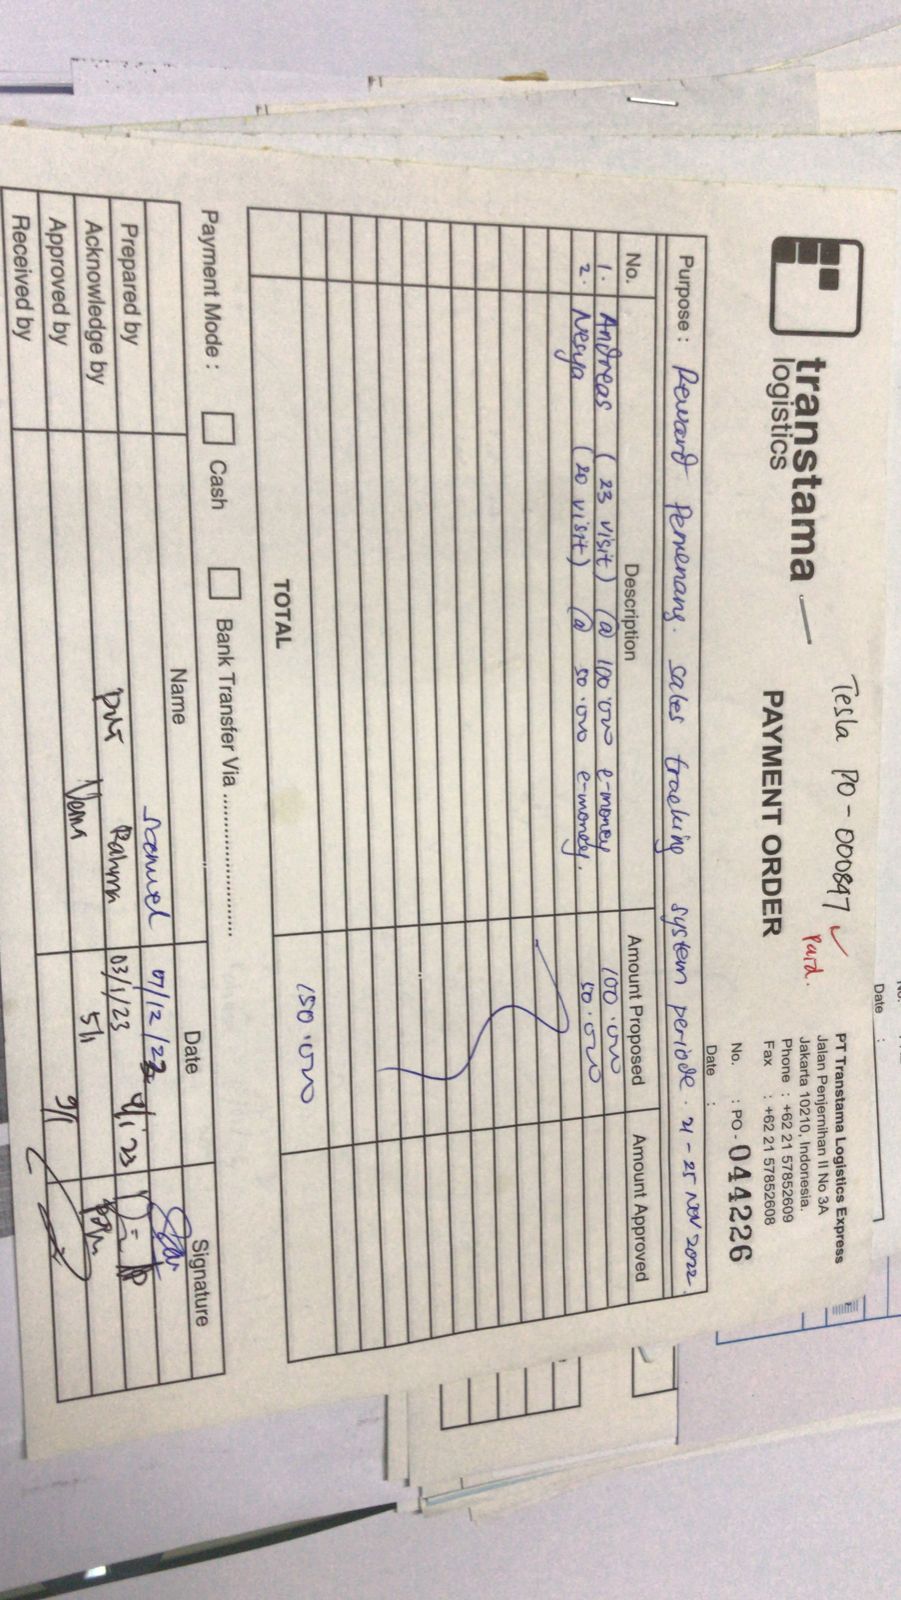 No.
Date :
transtama
logistics
Tesla PO - 000897 ✓
Paid.
PAYMENT ORDER
PT Transtama Logistics Express
Jalan Penjernihan II No 3A
Jakarta 10210, Indonesia.
Phone : +62 21 57852609
Fax : +62 21 57852608
No. : PO - 044226
Date :
Purpose : Reward Pemenang. sales tracking system periode. 21 - 25 NOV 2022.
No. Description Amount Proposed Amount Approved
1. Andreas (23 visit) @ 100.000 e-money 100.000
2. Nesya (20 visit) @ 50.000 e-money. 50.000
TOTAL 150.000
Payment Mode : Cash Bank Transfer Via ........................
Name Date Signature
Prepared by Samuel 07/12/22
Acknowledge by Rahma 03/1/23
Approved by 5/1
Received by 9/1